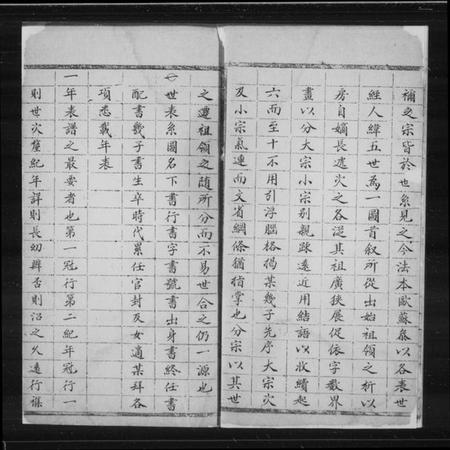 補之宗皆於世系見之今法本歐蘇叅以各表世
經人緯五世為一圖首叙所從出始祖領之析以
房自嫡長迄次之各從其祖廣狭展促依字数界
畫以分大宗小宗别親踈遠近用結語以收續起
六而至十不用引浮腦格揭某幾子先序大宗次
及小宗氣連而文省綱條猶指掌也分宗以其世
之遷祖領之随所分而不易世合之仍一源也
一世表系圖名下書行書字書號書出身書終任書
配書幾子書生卒時代累任官封及女適某拜各
項悉載年表
一年表譜之最要者也第一冠行第二紀年冠行一
則世次釐紀年詳則長幼辨否則沿之久遠行諜